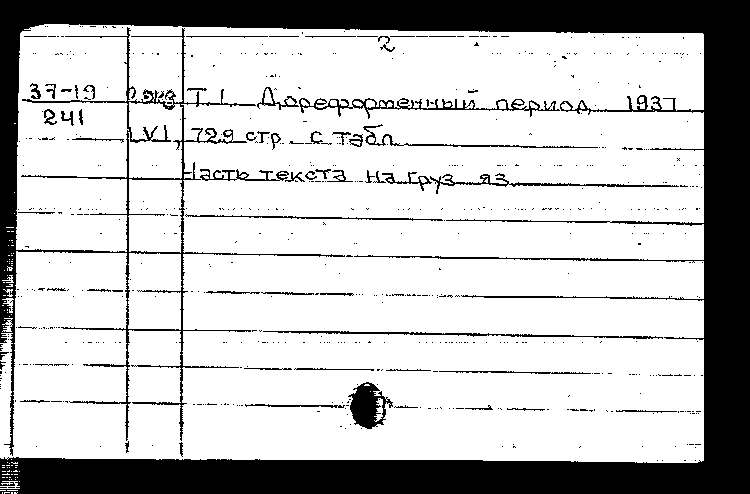 2
37-19 2 экз. Т. 1. Дореформенный период 1937
241 LVI, 729 стр. с табл.
Часть текста на груз. яз.